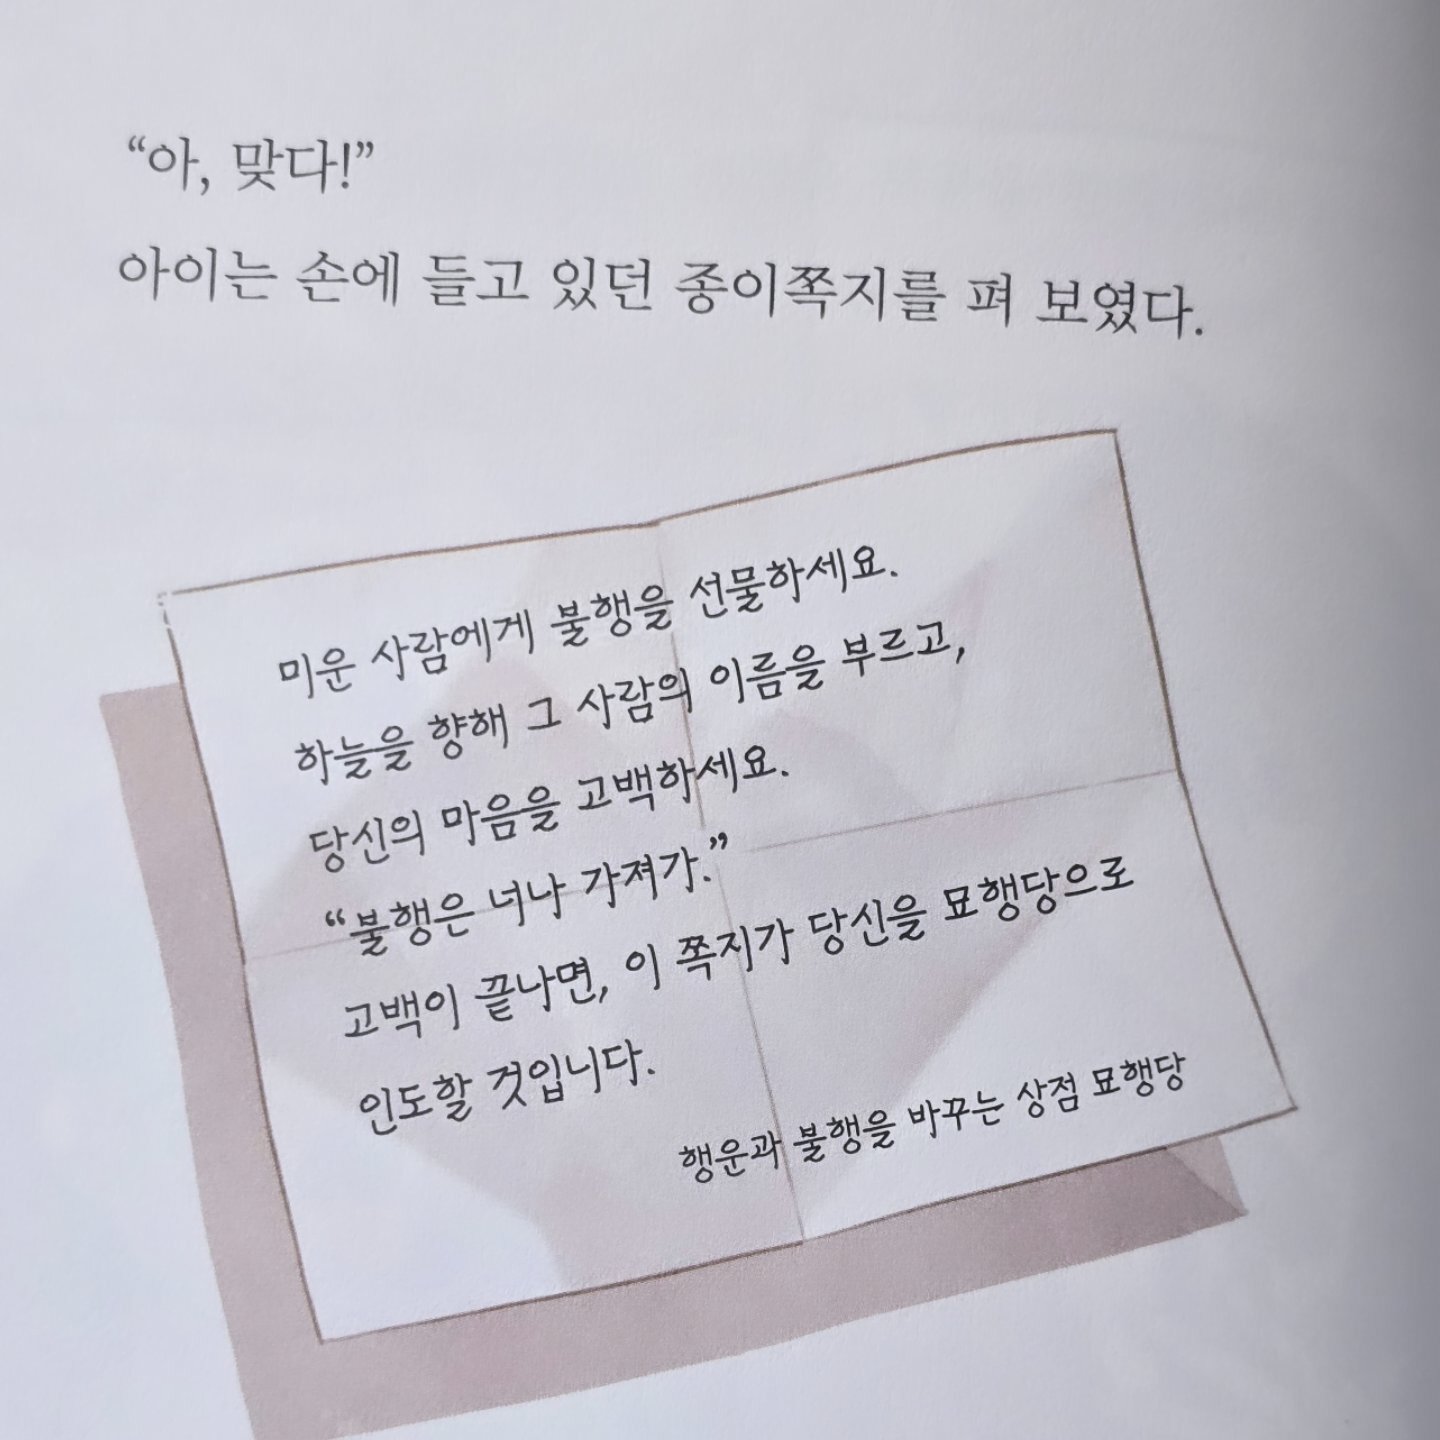 “아, 맞다!”
아이는 손에 들고 있던 종이쪽지를 펴 보였다.
미운 사람에게 불행을 선물하세요.
하늘을 향해 그 사람의 이름을 부르고,
당신의 마음을 고백하세요.
“불행은 너나 가져가.”
고백이 끝나면, 이 쪽지가 당신을 묘행당으로
인도할 것입니다.
행운과 불행을 바꾸는 상점 묘행당